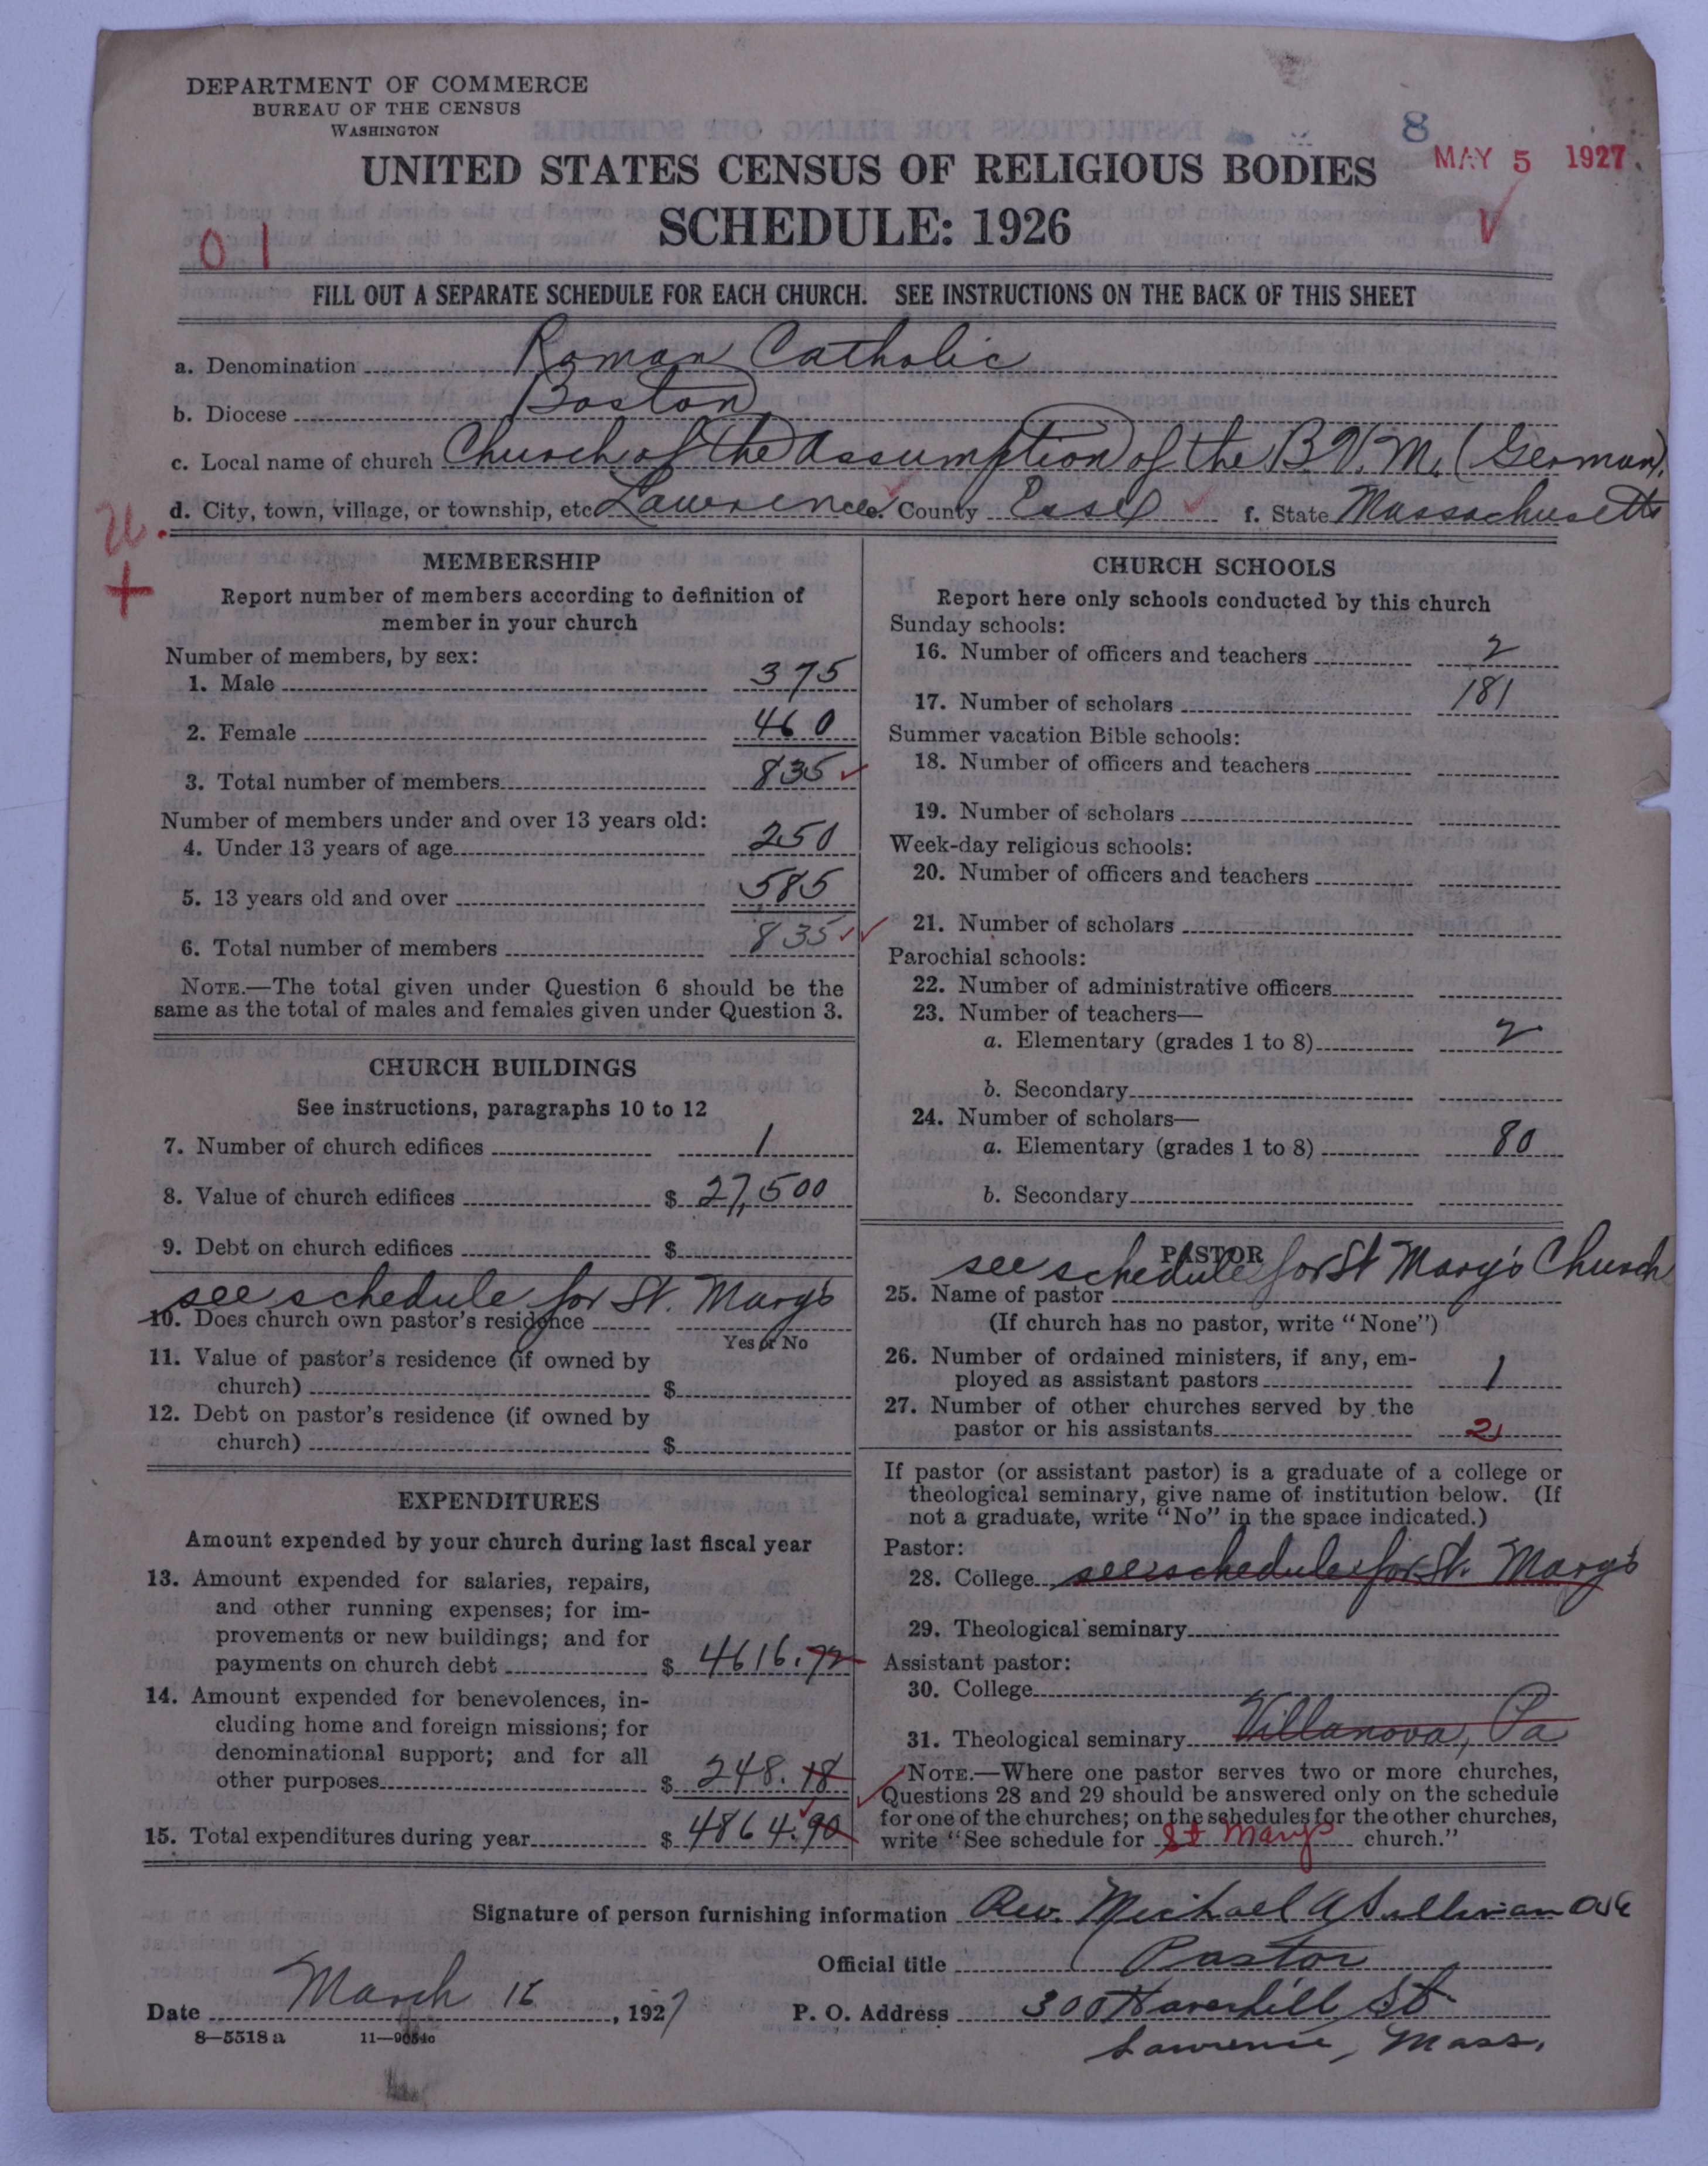 DEPARTMENT OF COMMERCE
BUREAU OF THE CENSUS
WASHINGTON
8
MAY 5 1927
UNITED STATES CENSUS OF RELIGIOUS BODIES
SCHEDULE: 1926
01
FILL OUT A SEPARATE SCHEDULE FOR EACH CHURCH. SEE INSTRUCTIONS ON THE BACK OF THIS SHEET
a. Denomination Roman Catholic
b. Diocese Boston
c. Local name of church Church of the Assumption of the B.V.M. (German).
d. City, town, village, or township, etc. Lawrence e. County Essex f. State Massachusetts
MEMBERSHIP
Report number of members according to definition of
member in your church
Number of members, by sex:
1. Male 375
2. Female 460
3. Total number of members 835
Number of members under and over 13 years old:
4. Under 13 years of age 250
5. 13 years old and over 585
6. Total number of members 835
NOTE.—The total given under Question 6 should be the
same as the total of males and females given under Question 3.
CHURCH BUILDINGS
See instructions, paragraphs 10 to 12
7. Number of church edifices 1
8. Value of church edifices $ 27,500
9. Debt on church edifices $
see schedule for St. Mary's
10. Does church own pastor's residence
Yes or No
11. Value of pastor's residence (if owned by
church) $
12. Debt on pastor's residence (if owned by
church) $
EXPENDITURES
Amount expended by your church during last fiscal year
13. Amount expended for salaries, repairs,
and other running expenses; for im-
provements or new buildings; and for
payments on church debt $ 4616.72
14. Amount expended for benevolences, in-
cluding home and foreign missions; for
denominational support; and for all
other purposes $ 248.18
15. Total expenditures during year $ 4864.90
CHURCH SCHOOLS
Report here only schools conducted by this church
Sunday schools:
16. Number of officers and teachers 2
17. Number of scholars 181
Summer vacation Bible schools:
18. Number of officers and teachers
19. Number of scholars
Week-day religious schools:
20. Number of officers and teachers
21. Number of scholars
Parochial schools:
22. Number of administrative officers
23. Number of teachers—
a. Elementary (grades 1 to 8) 2
b. Secondary
24. Number of scholars—
a. Elementary (grades 1 to 8) 80
b. Secondary
PASTOR
see schedule for St Mary's Church
25. Name of pastor
(If church has no pastor, write "None")
26. Number of ordained ministers, if any, em-
ployed as assistant pastors 1
27. Number of other churches served by the
pastor or his assistants 2
If pastor (or assistant pastor) is a graduate of a college or
theological seminary, give name of institution below. (If
not a graduate, write "No" in the space indicated.)
Pastor:
28. College see schedule for St. Mary's
29. Theological seminary
Assistant pastor:
30. College
31. Theological seminary Villanova, Pa
NOTE.—Where one pastor serves two or more churches,
Questions 28 and 29 should be answered only on the schedule
for one of the churches; on the schedules for the other churches,
write "See schedule for St Marys church."
Signature of person furnishing information Rev. Michael A Sullivan OSA
Official title Pastor
Date March 16, 1927 P. O. Address 300 Haverhill St.
8—5518 a 11—9054c
Lawrence, Mass.